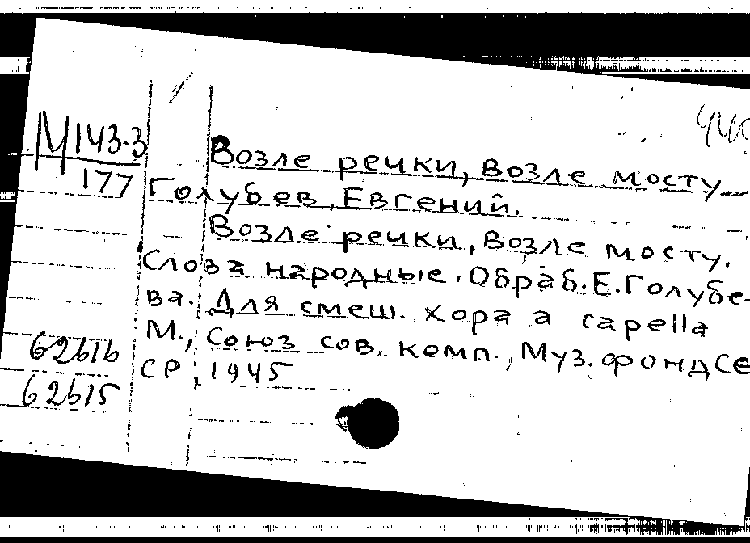 440
М 143.3
177
Возле речки, возле мосту
Голубев, Евгений.
Возле речки, возле мосту.
Слова народные. Обраб. Е. Голубе-
ва. Для смеш. хора a capella
М., Союз сов. комп., Муз. фонд СС
СР, 1945
62616
62615